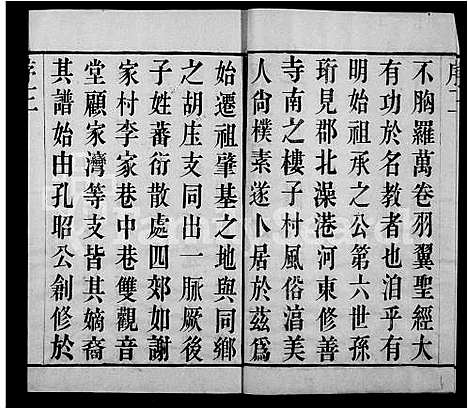 序二
不胸羅萬卷羽翼聖經大
有功於名教者也洎乎有
明始祖承之公第六世孫
珩見郡北澡港河東修善
寺南之棲子村風俗淯美
人尚樸素遂卜居於茲爲
始遷祖肇基之地與同鄉
之胡庄支同出一脈厥後
子姓蕃衍散處四郊如謝
家村李家巷中巷雙觀音
堂顧家灣等支皆其嫡裔
其譜始由孔昭公創修於
序二